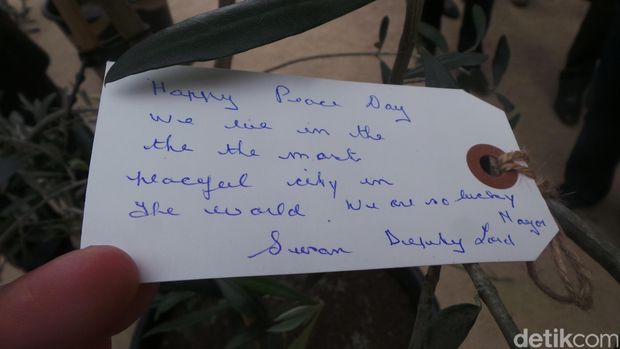 Happy Peace Day
We live in the
the the most
peaceful city in
the world. We are so lucky
Susan Deputy Lord Mayor
detikcom